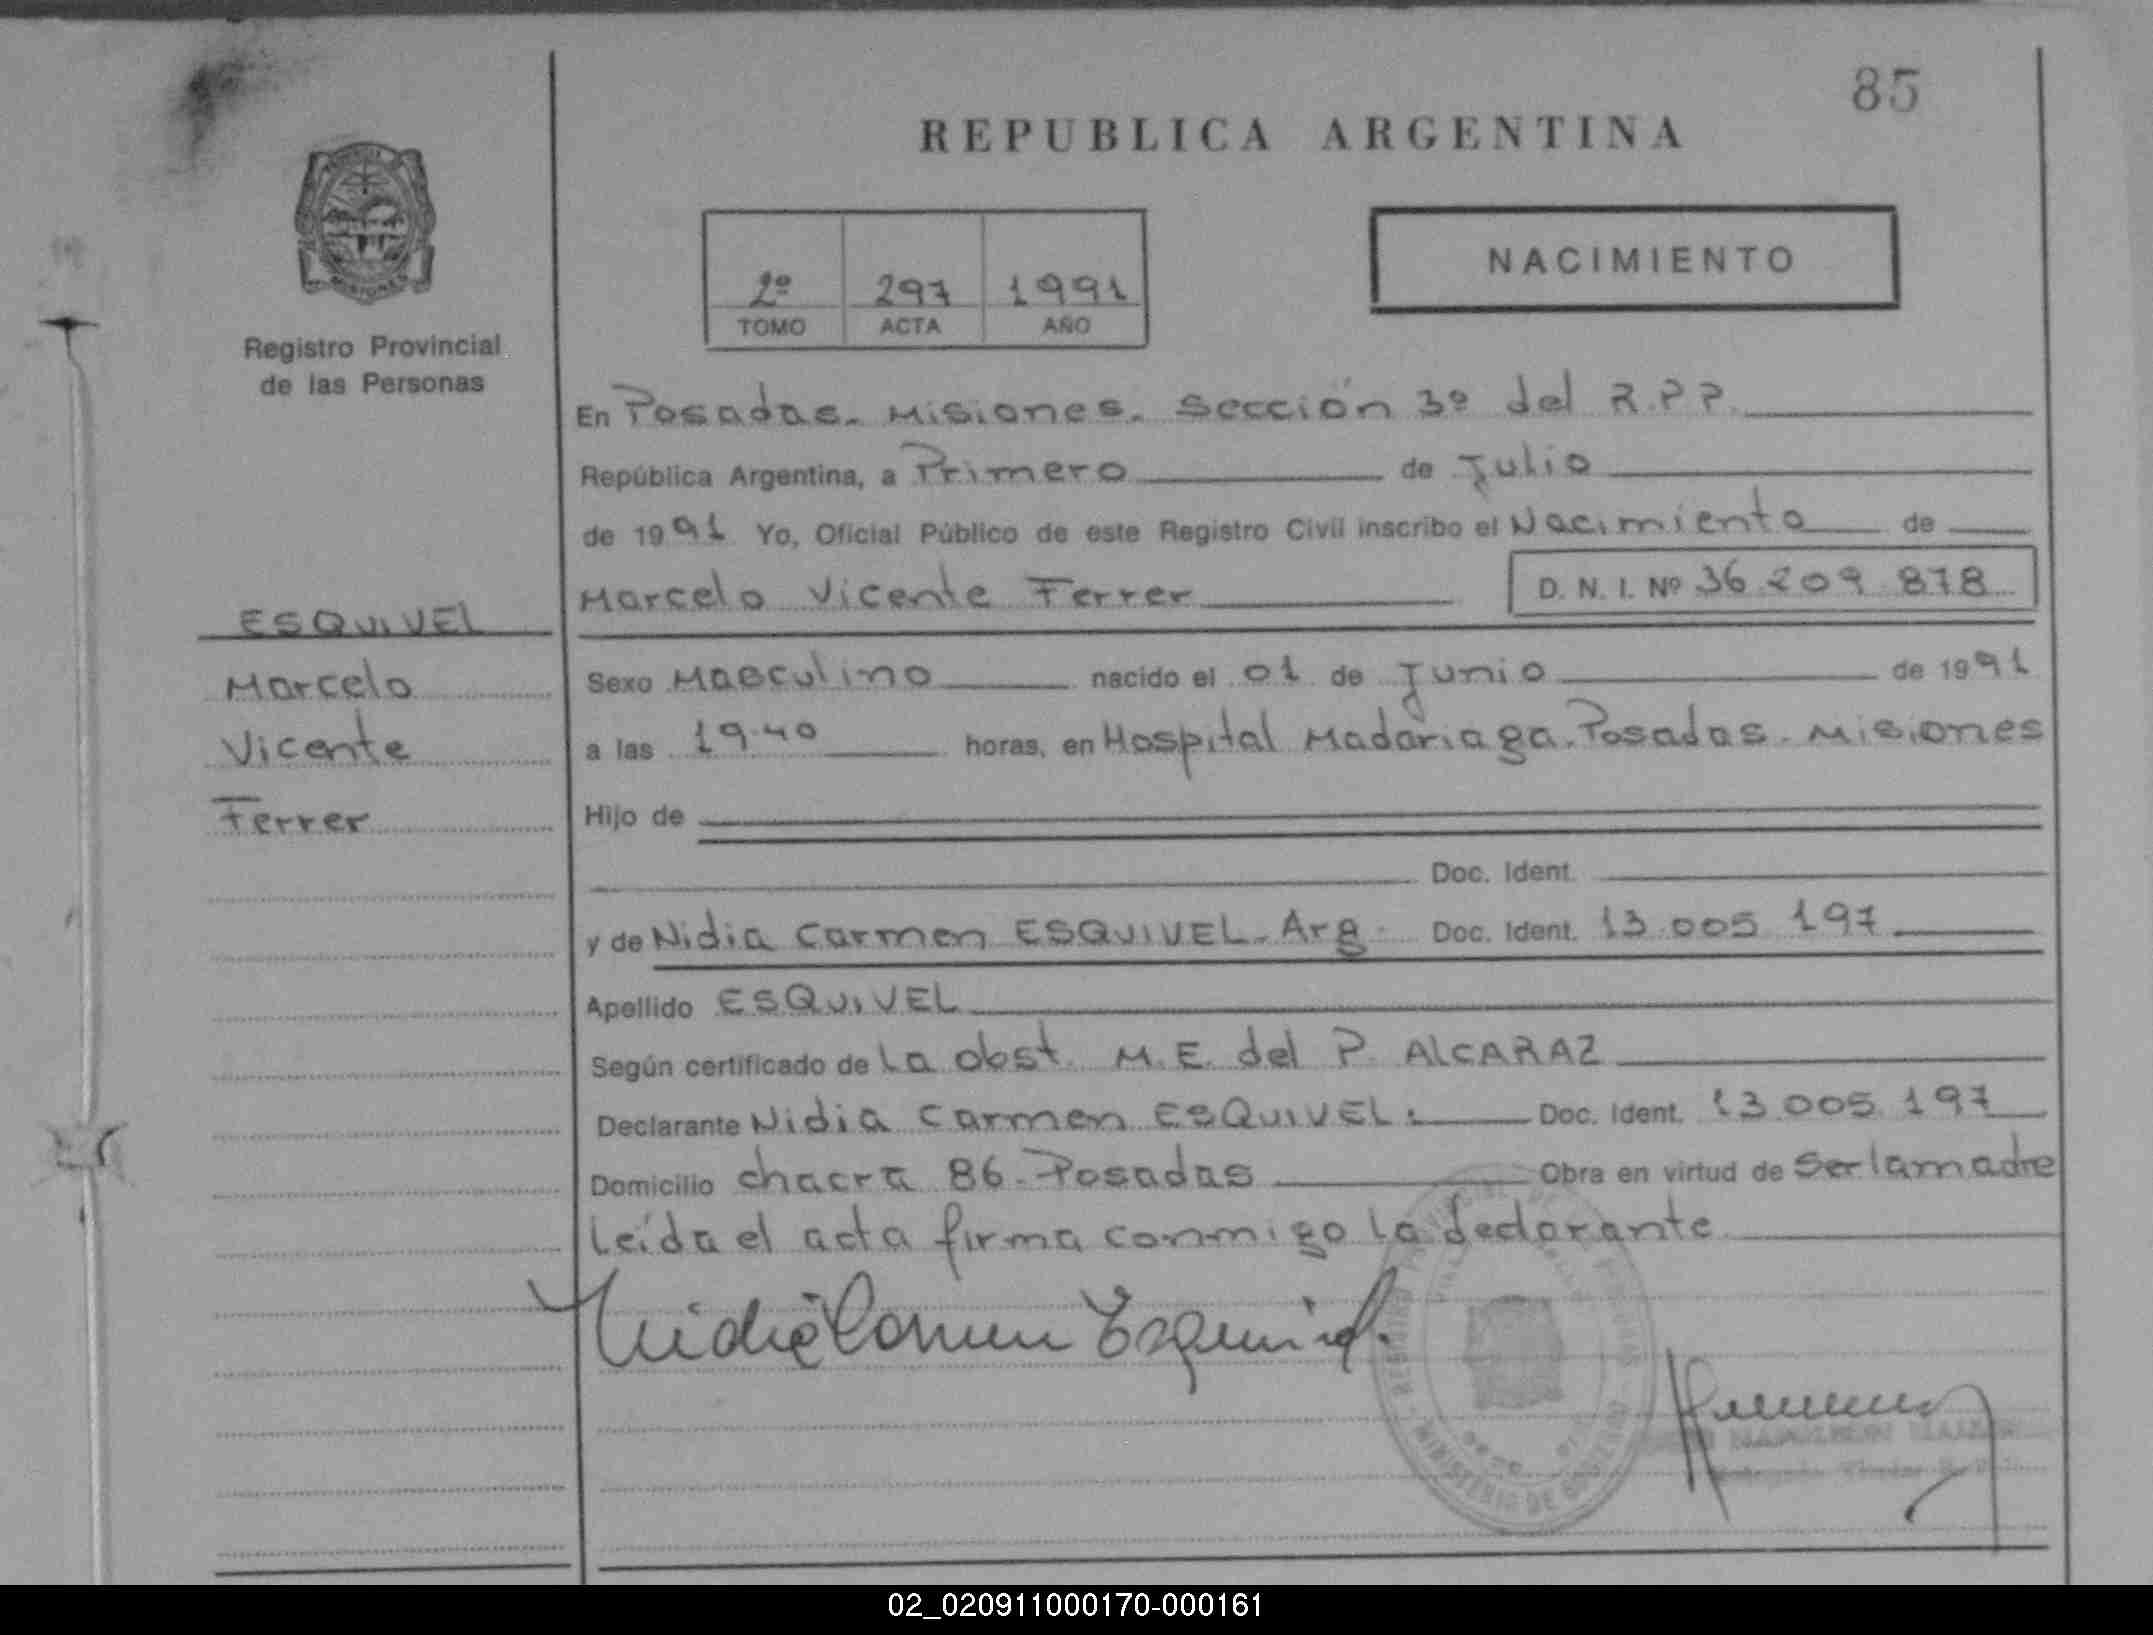 85
REPUBLICA ARGENTINA
NACIMIENTO
2º 297 1991
TOMO ACTA AÑO
Registro Provincial
de las Personas
En Posadas. Misiones. Sección 3º del R.P.P.
República Argentina, a Primero de Julio
de 1991 Yo, Oficial Público de este Registro Civil inscribo el Nacimiento de
Marcelo Vicente Ferrer D. N. I. Nº 36.209.878
ESQUIVEL
Marcelo
Vicente
Ferrer
Sexo Masculino nacido el 01 de Junio de 1991
a las 19.40 horas, en Hospital Madariaga. Posadas. Misiones
Hijo de
Doc. Ident.
y de Nidia Carmen ESQUIVEL. Arg. Doc. Ident. 13.005.197
Apellido ESQUIVEL
Según certificado de La obst. M.E. del P. ALCARAZ
Declarante Nidia Carmen ESQUIVEL. Doc. Ident. 13.005.197
Domicilio chacra 86. Posadas Obra en virtud de Ser la madre
Leída el acta firma conmigo la declarante
Nidia Carmen Esquivel.
MINISTERIO DE GOBIERNO
02_020911000170-000161